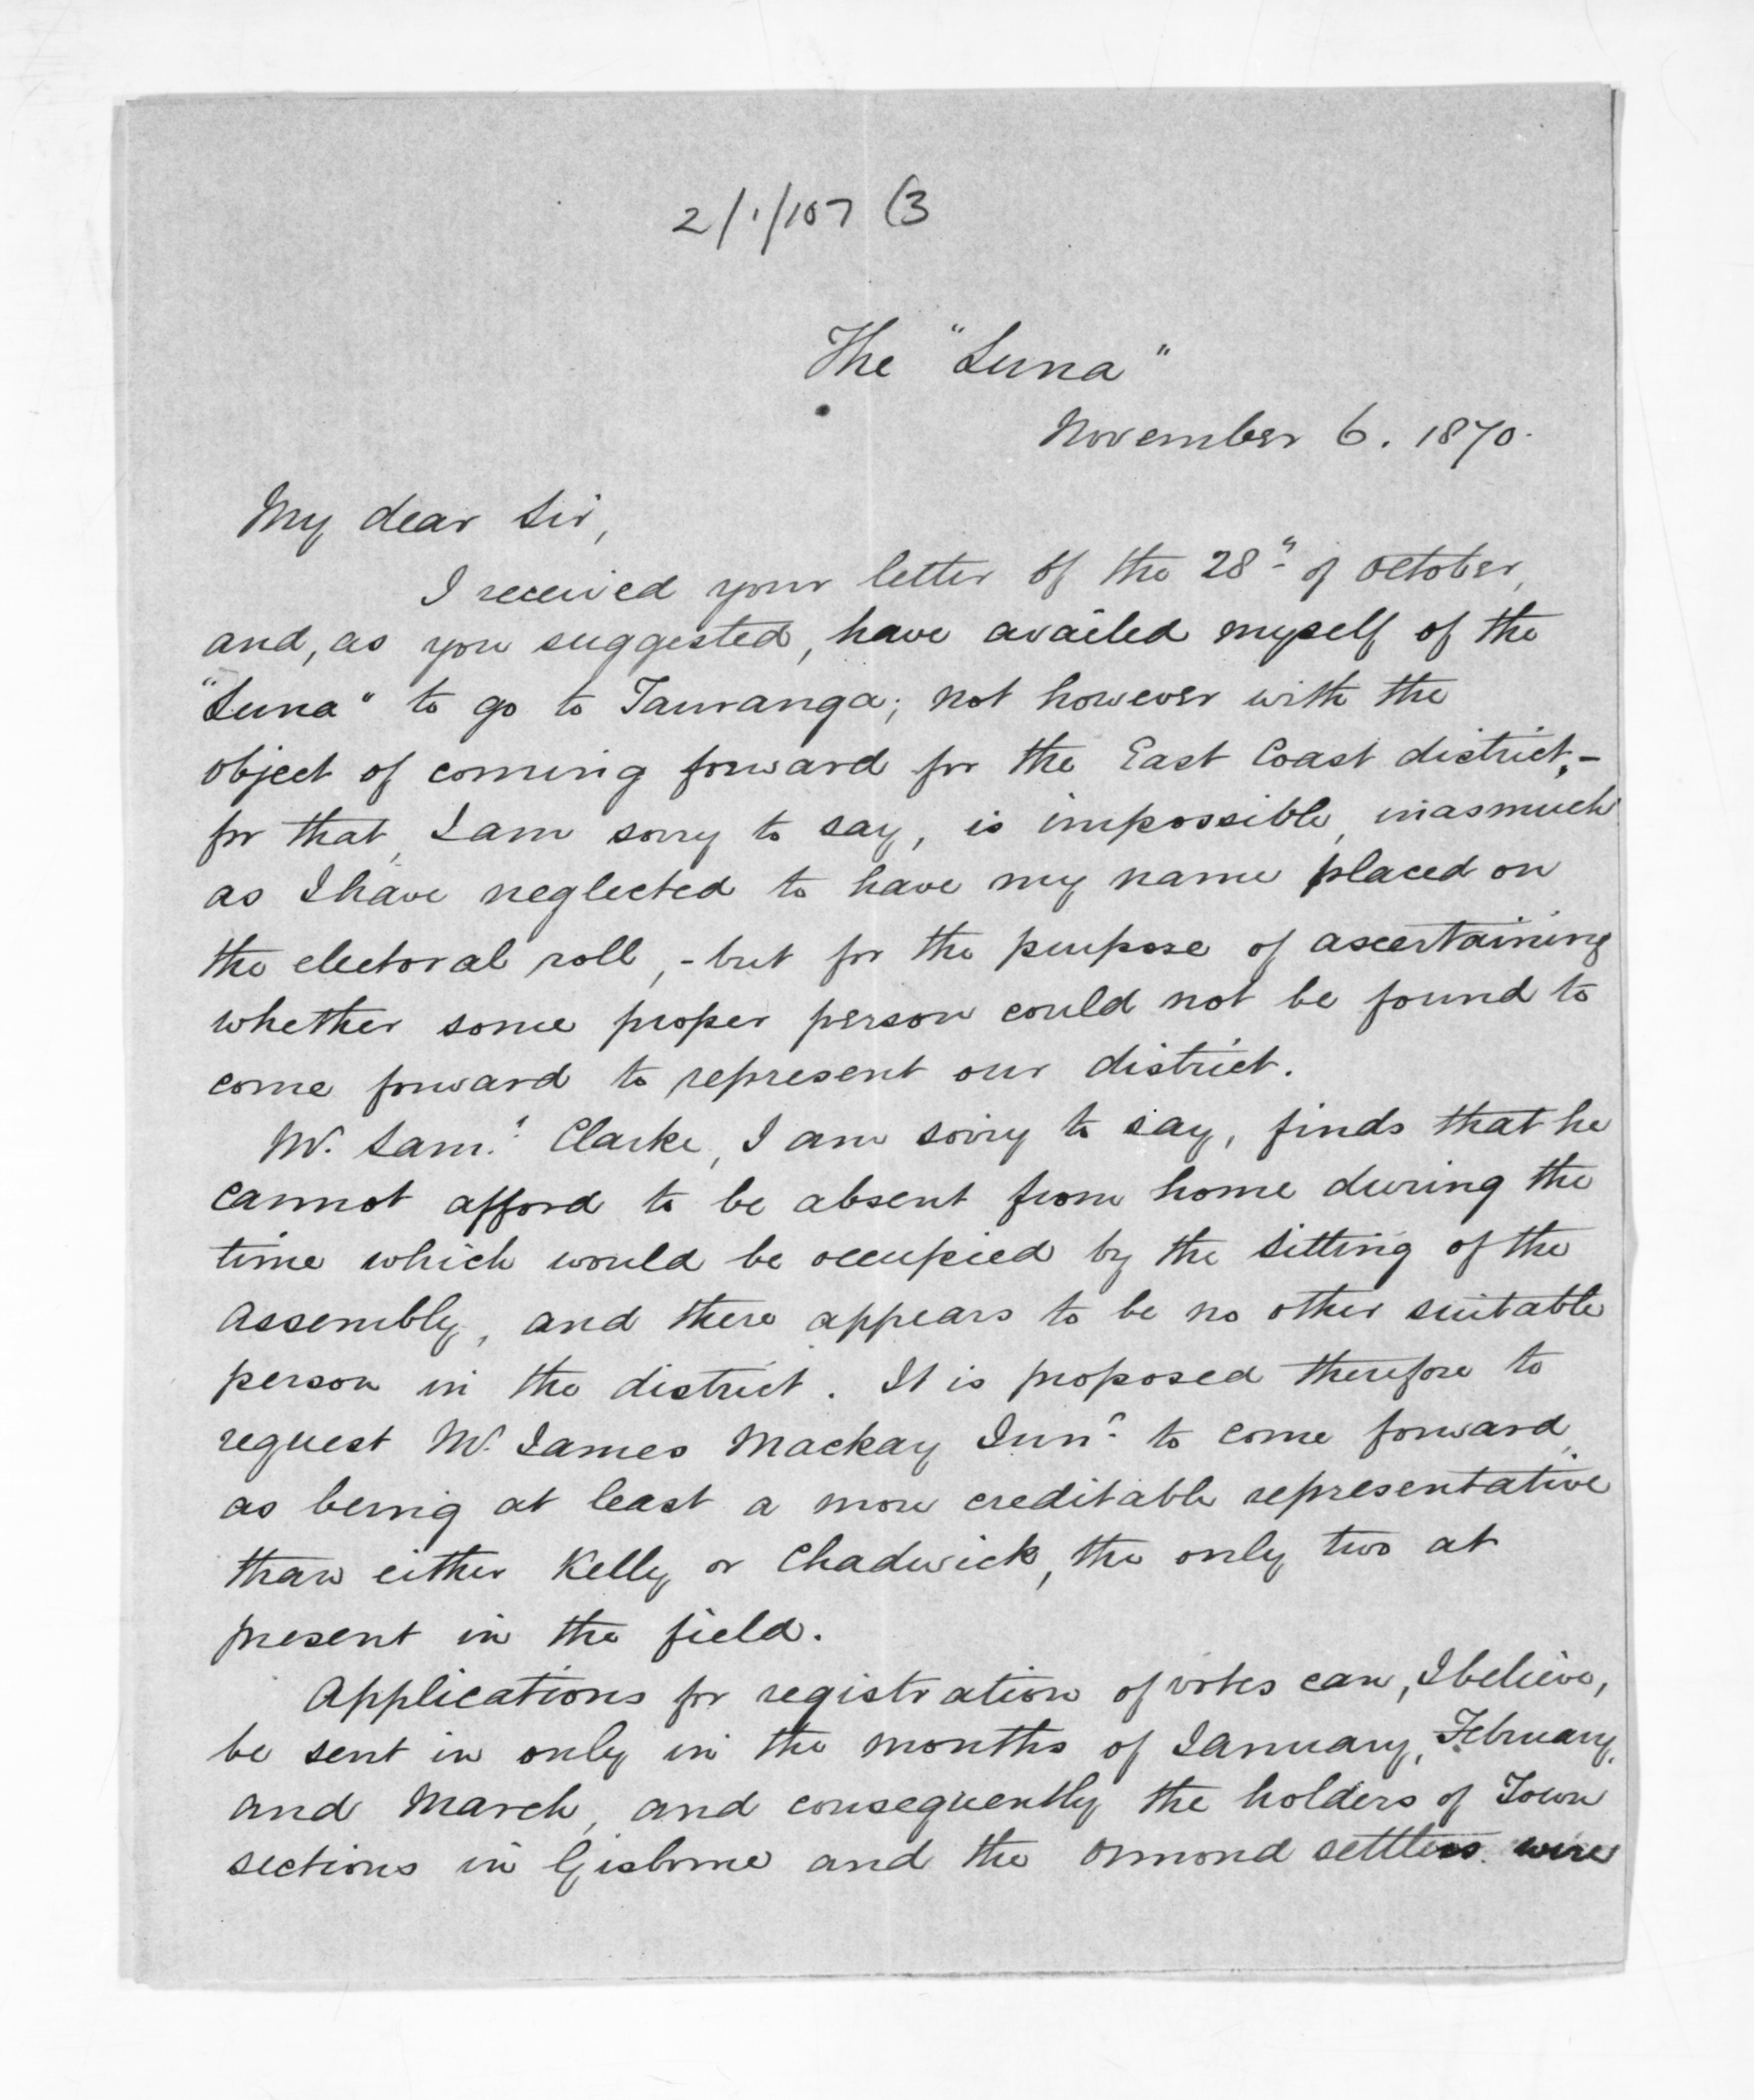 2/1/107 (3
The "Luna"
November 6. 1870.
My dear Sir,
I received your letter of the 28th of October,
and, as you suggested, have availed myself of the
"Luna" to go to Tauranga; not however with the
object of coming forward for the East Coast district,-
for that, I am sorry to say, is impossible, inasmuch
as I have neglected to have my name placed on
the electoral roll,-but for the purpose of ascertaining
whether some proper person could not be found to
come forward to represent our district.
Mr. Saml. Clarke, I am sorry to say, finds that he
cannot afford to be absent from home during the
time which would be occupied by the Sitting of the
Assembly, and there appears to be no other suitable
person in the district. It is proposed therefore to
request Mr. James Mackay Junr. to come forward,
as being at least a more creditable representative
than either Kelly or Chadwick, the only two at
present in the field.
Applications for registration of votes can, I believe,
be sent in only in the months of January, February,
and March, and consequently the holders of Town
sections in Gisborne and the Ormond settlers were